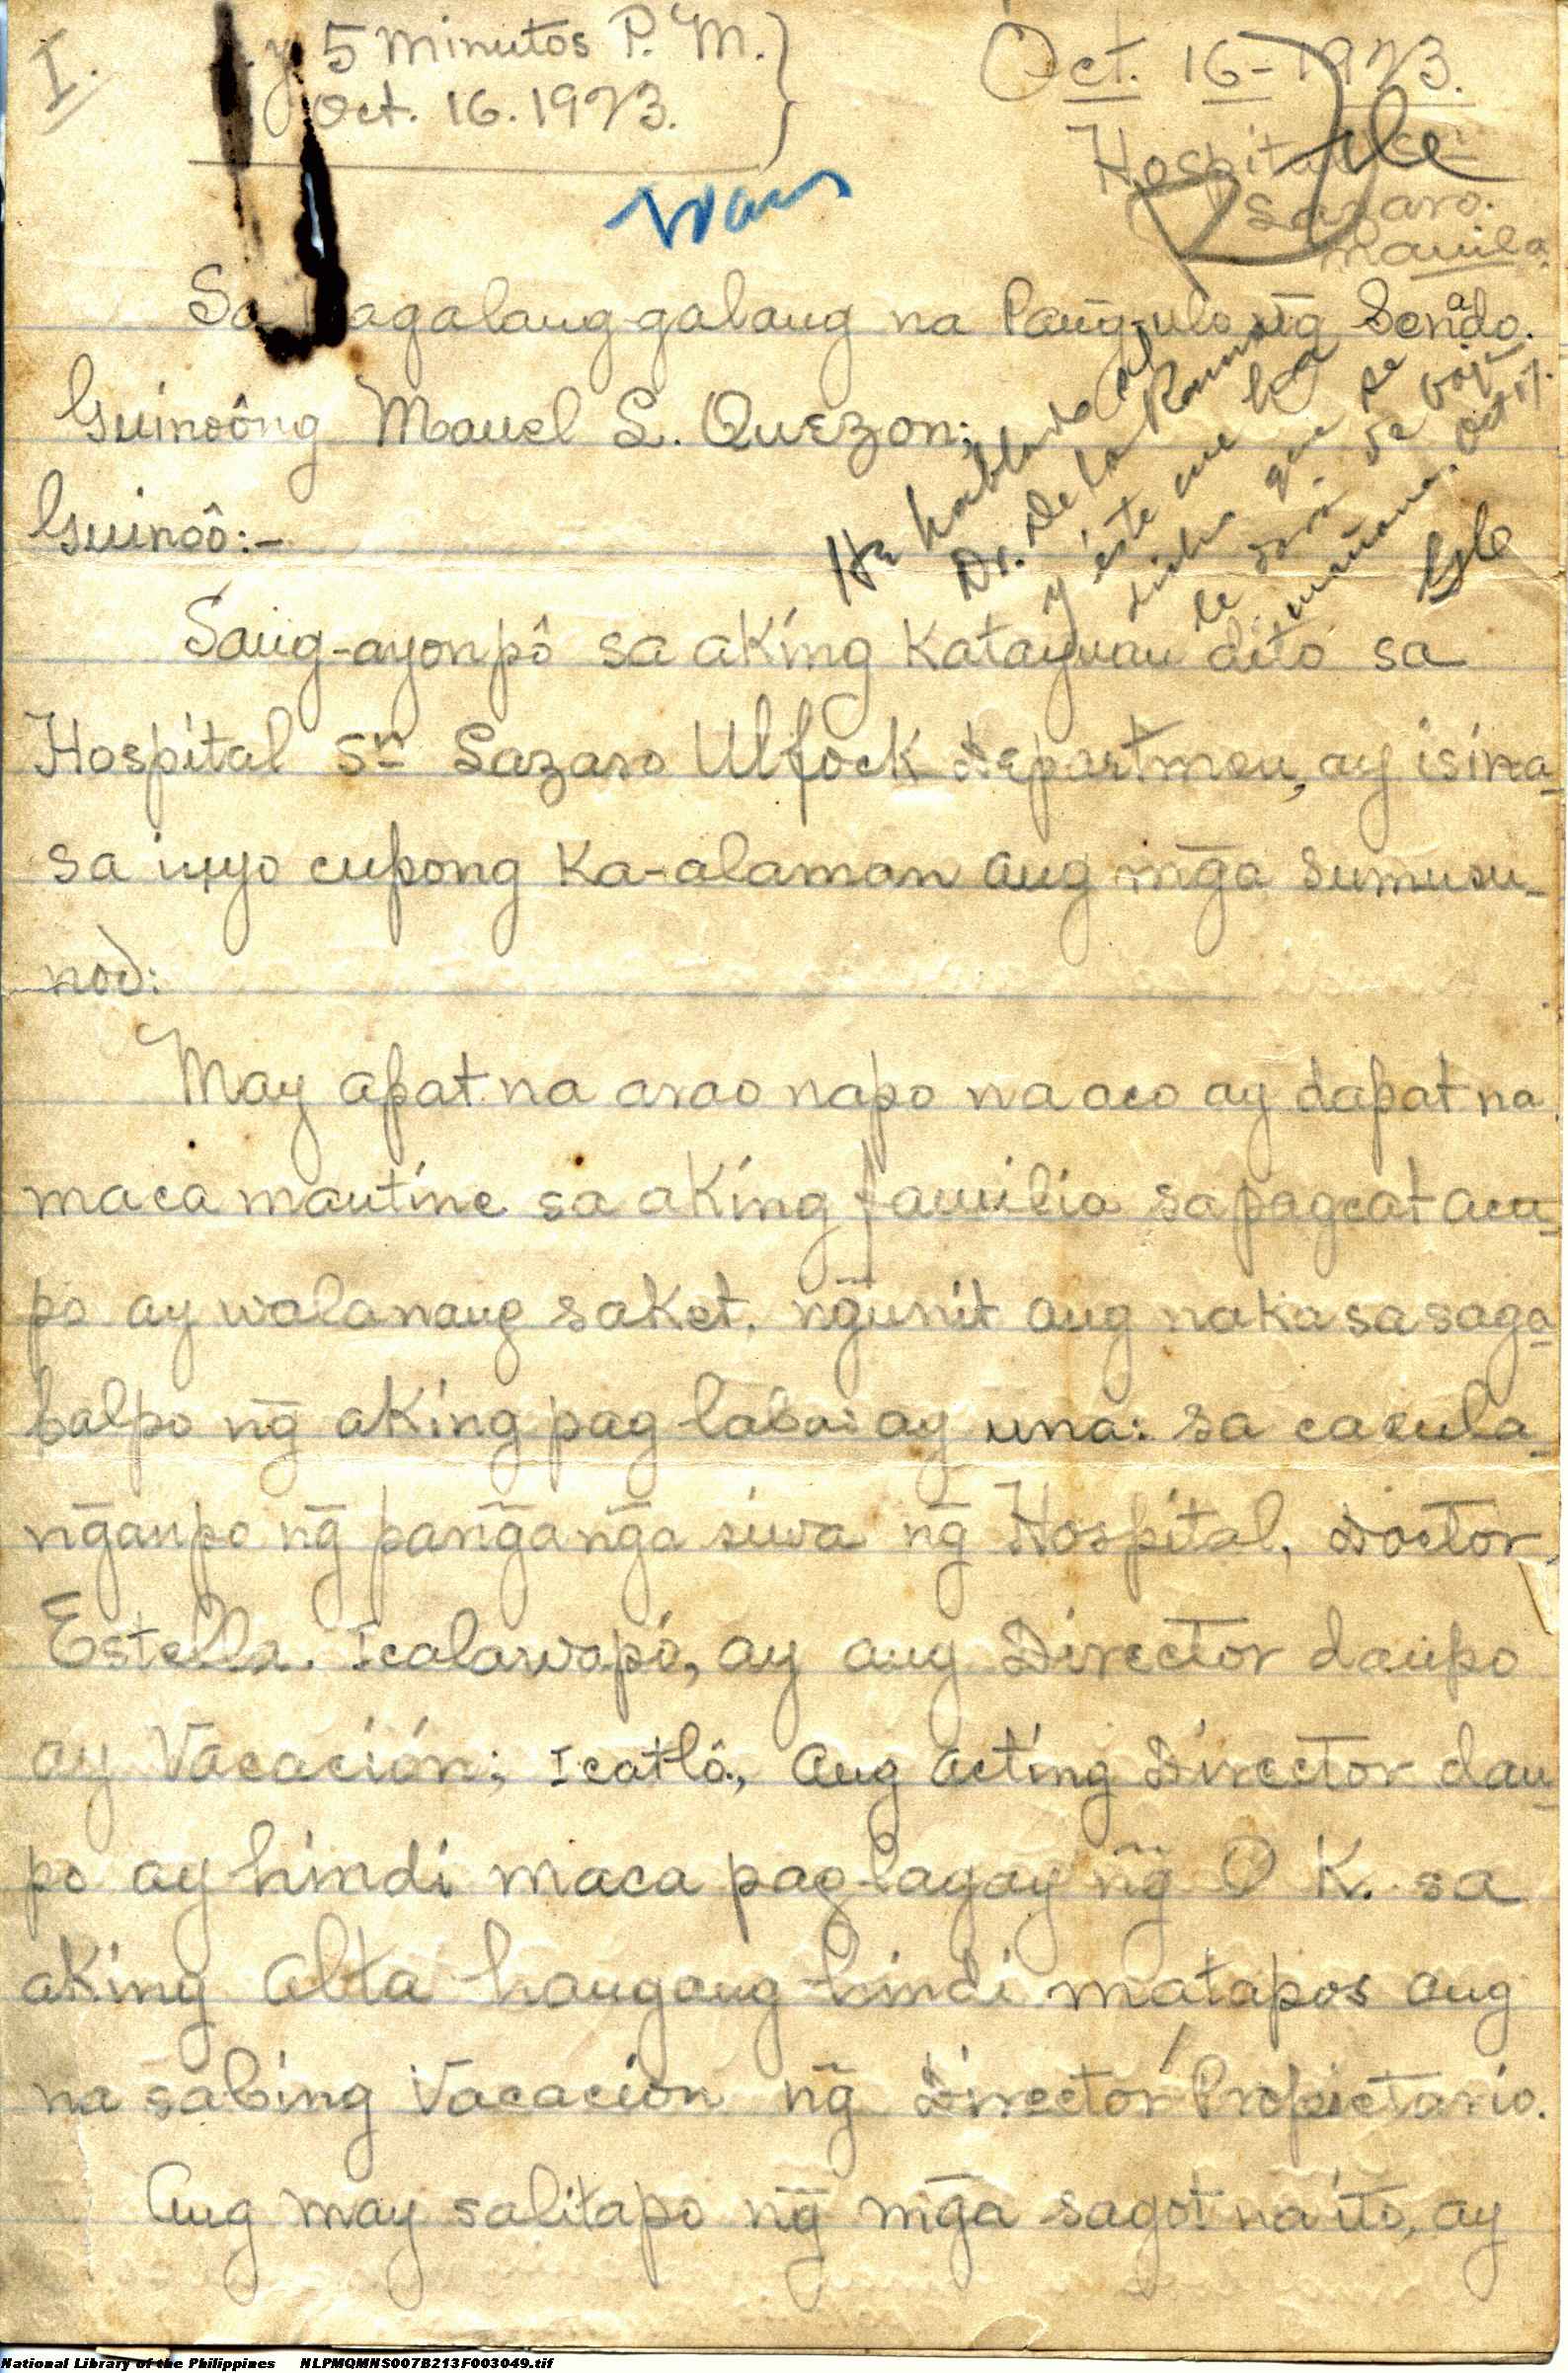 I.
y 5 minutos P. M.
Oct. 16. 1923.
Oct. 16-1923.
Hospital Sn
Lazaro.
Manila.
Sa kagalang-galang na Pang̃-ulo ng̃ Senado.
Guinoông Manuel L. Quezon;
Guinoô:-
He hablado al
Dr. De la Rama
y éste me ha
dicho que se
le dará de baja
mañana. Oct 17.
Sang-ayon pô sa aking Katayuan dito sa
Hospital Sn Lazaro Ulfock Departmen, ay isina-
sa inyo cupong Ka-alaman ang mg̃a sumusu-
nod:
May apat na arao napo na aco ay dapat na
maca mantine sa aking familia sapagcat acu-
po ay walanang saket, ng̃unit ang naka sasaga-
balpo ng̃ aking pag labas ay una: sa cacula-
ng̃anpo ng̃ pang̃ang̃asiwa ng̃ Hospital, Doctor,
Estella. Icalawapô, ay ang Director daupo
ay Vacación; Icatlô, Ang acting Director dau-
po ay hindi maca pag-lagay ng̃ O K. sa
aking Alta hangang hindi matapos ang
na sabing Vacacion ng̃ Director Propietario.
Ang may salitapo ng̃ mg̃a sagot na ito, ay
National Library of the Philippines NLPMQMNS007B213F003049.tif